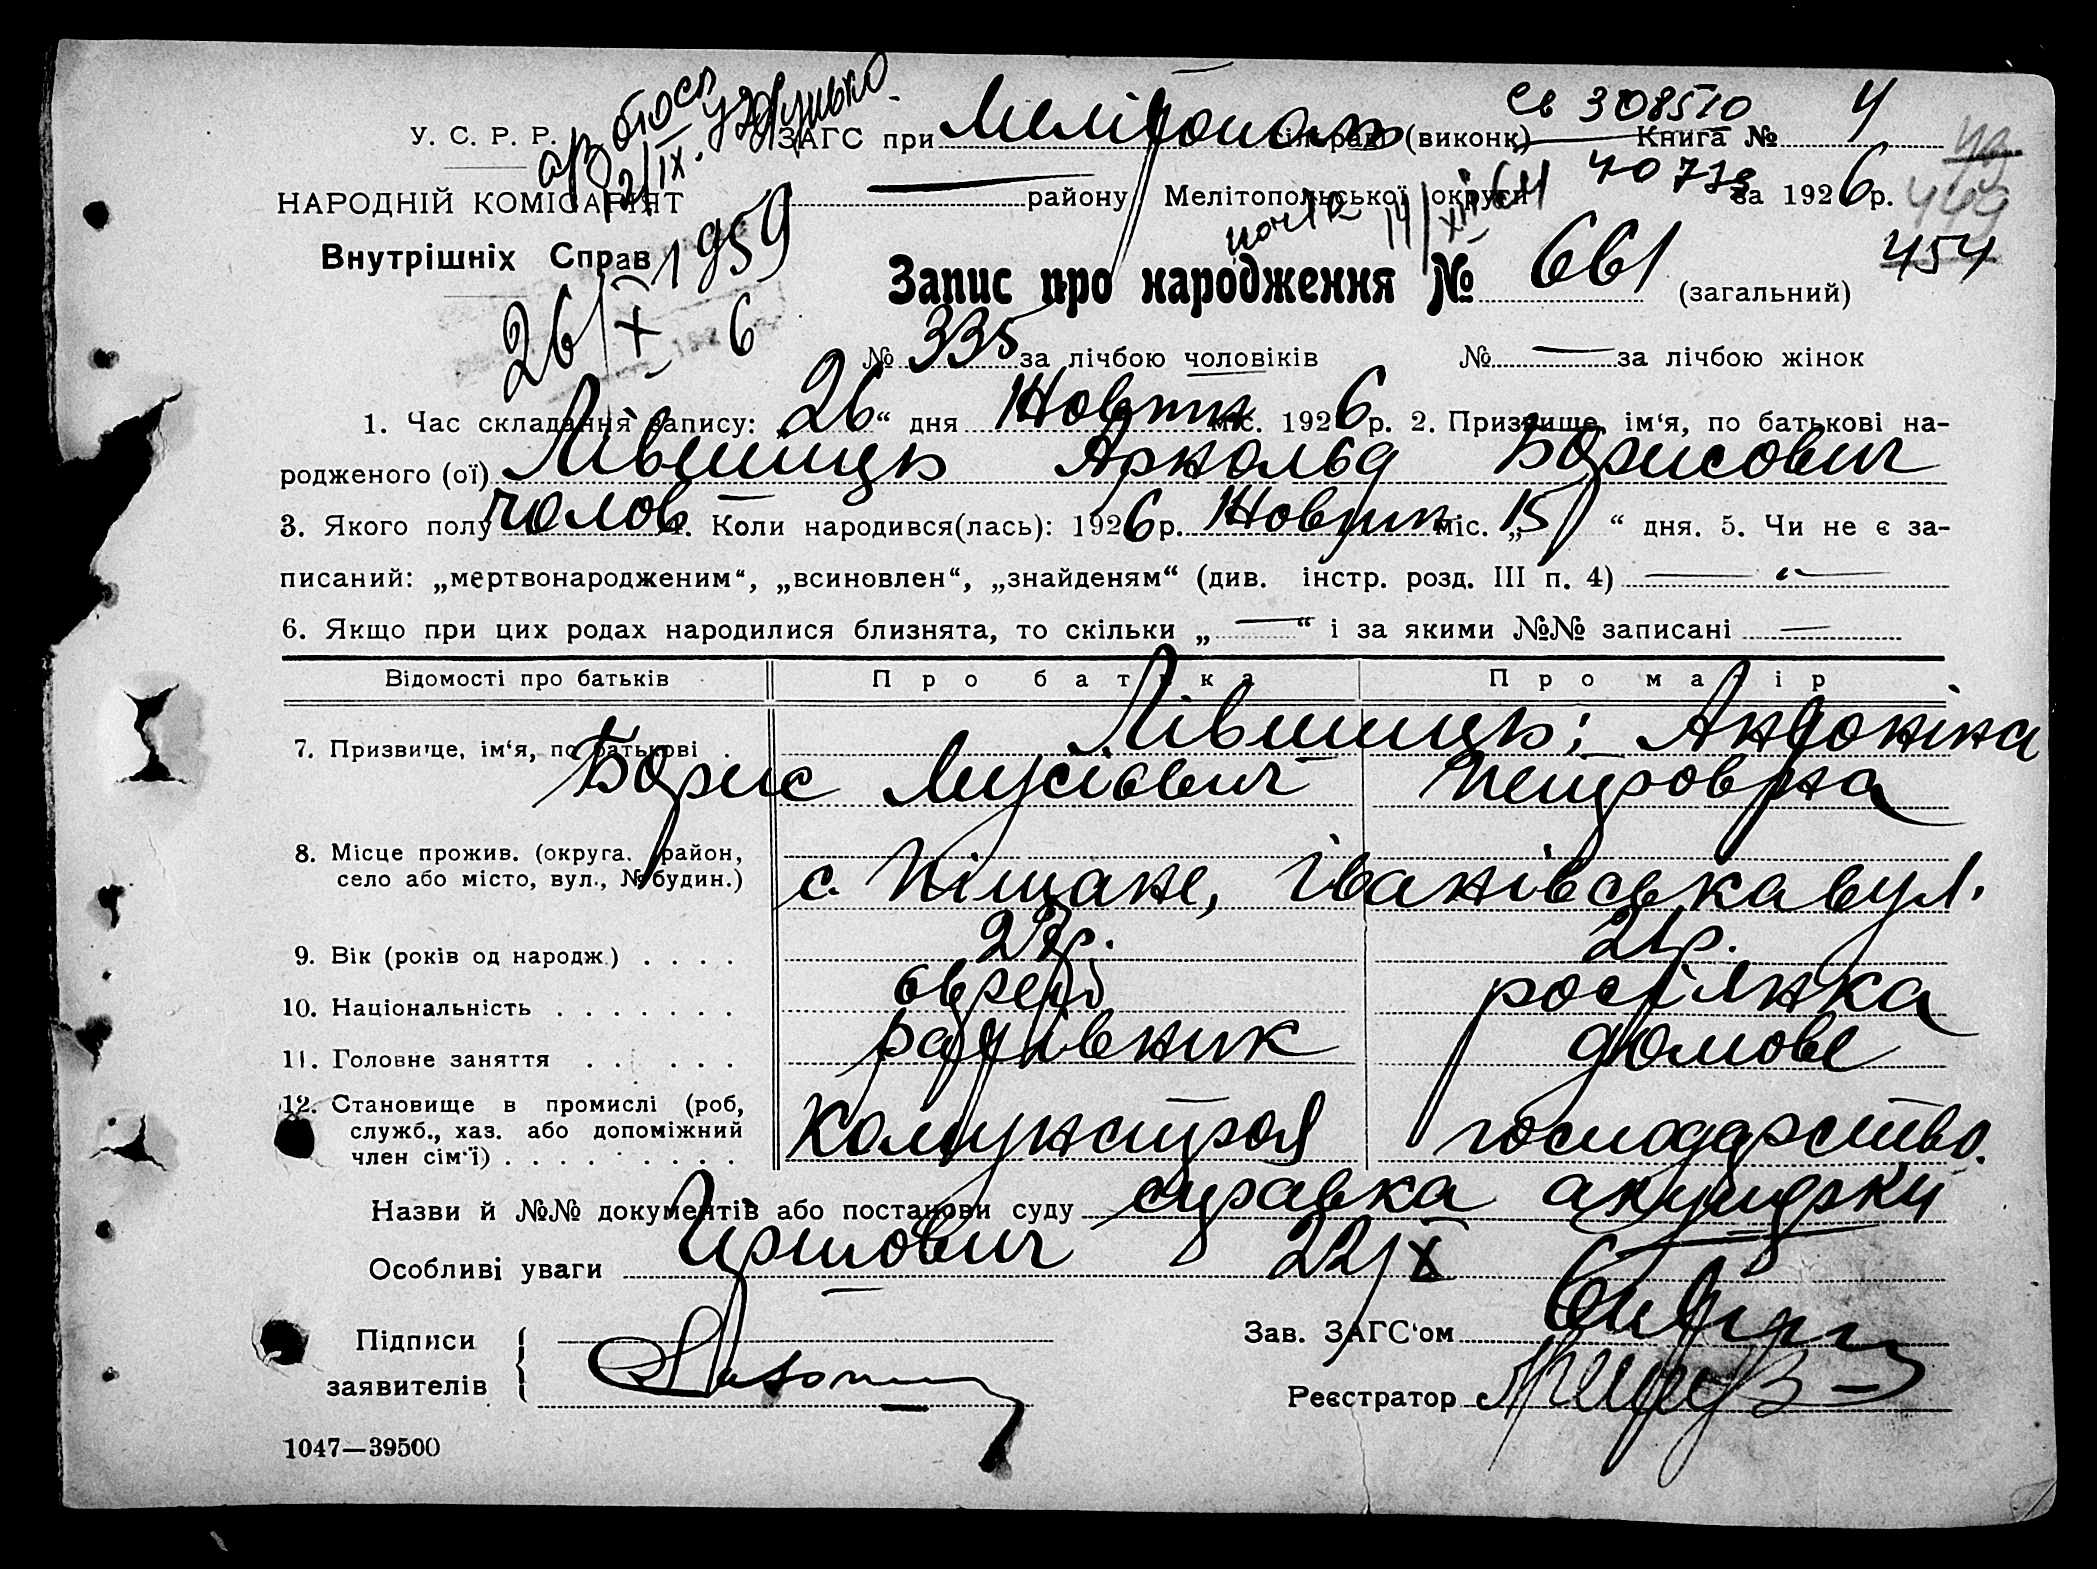 У. С. Р. Р. ЗАГС при Мелітополь сільраді (виконк) Книга № 4
Св 308510
НАРОДНІЙ КОМІСАРІЯТ района Мелітопольської округи за 1926 р.
12/IX. 1959
14/XII 61 40773
449
454
Внутрішніх Справ
Запис про народження № 661 (загальний)
26/X 6
№ 335 за лічбою чоловіків № — за лічбою жінок
1. Час складання запису: „26“ дня Жовтня міс. 1926 р. 2. Призвище, ім‘я, по батькові на-
родженого (ої) Лівшиць Арнольд Борисович
3. Якого полу чолов 4. Коли народився(лась): 1926 р. Жовтня міс. „15“ дня. 5. Чи не є за-
писаний: „мертвонародженим“, „всиновлен“, „знайденям“ (див. інстр. розд. III п. 4) — „ —
6. Якщо при цих родах народилися близнята, то скільки „—“ і за якими №№ записані —
Відомості про батьків Про батька Про матір
7. Призвище, ім‘я, по батькові . Лівшиць: Антоніна
Борис Мусієвич Петровна
8. Місце прожив. (округа, район,
село або місто, вул., № будин.) с. Піщане, Іванівська вул.
9. Вік (років од народж.) . . . . 22р. 21р.
10. Національність . . . . . . . єврей росіянка
11. Головне заняття . . . . . . радівник домове
12. Становище в промислі (роб,
служб., хаз. або допоміжний
член сім‘ї) . . . . . . . . . Комунстроя господарство.
Назви й №№ документів або постанови суду справка акушерки
Особливі уваги Гіршович 22/X
Підписи
заявителів
Зав. ЗАГС‘ом
Реєстратор
1047—39500